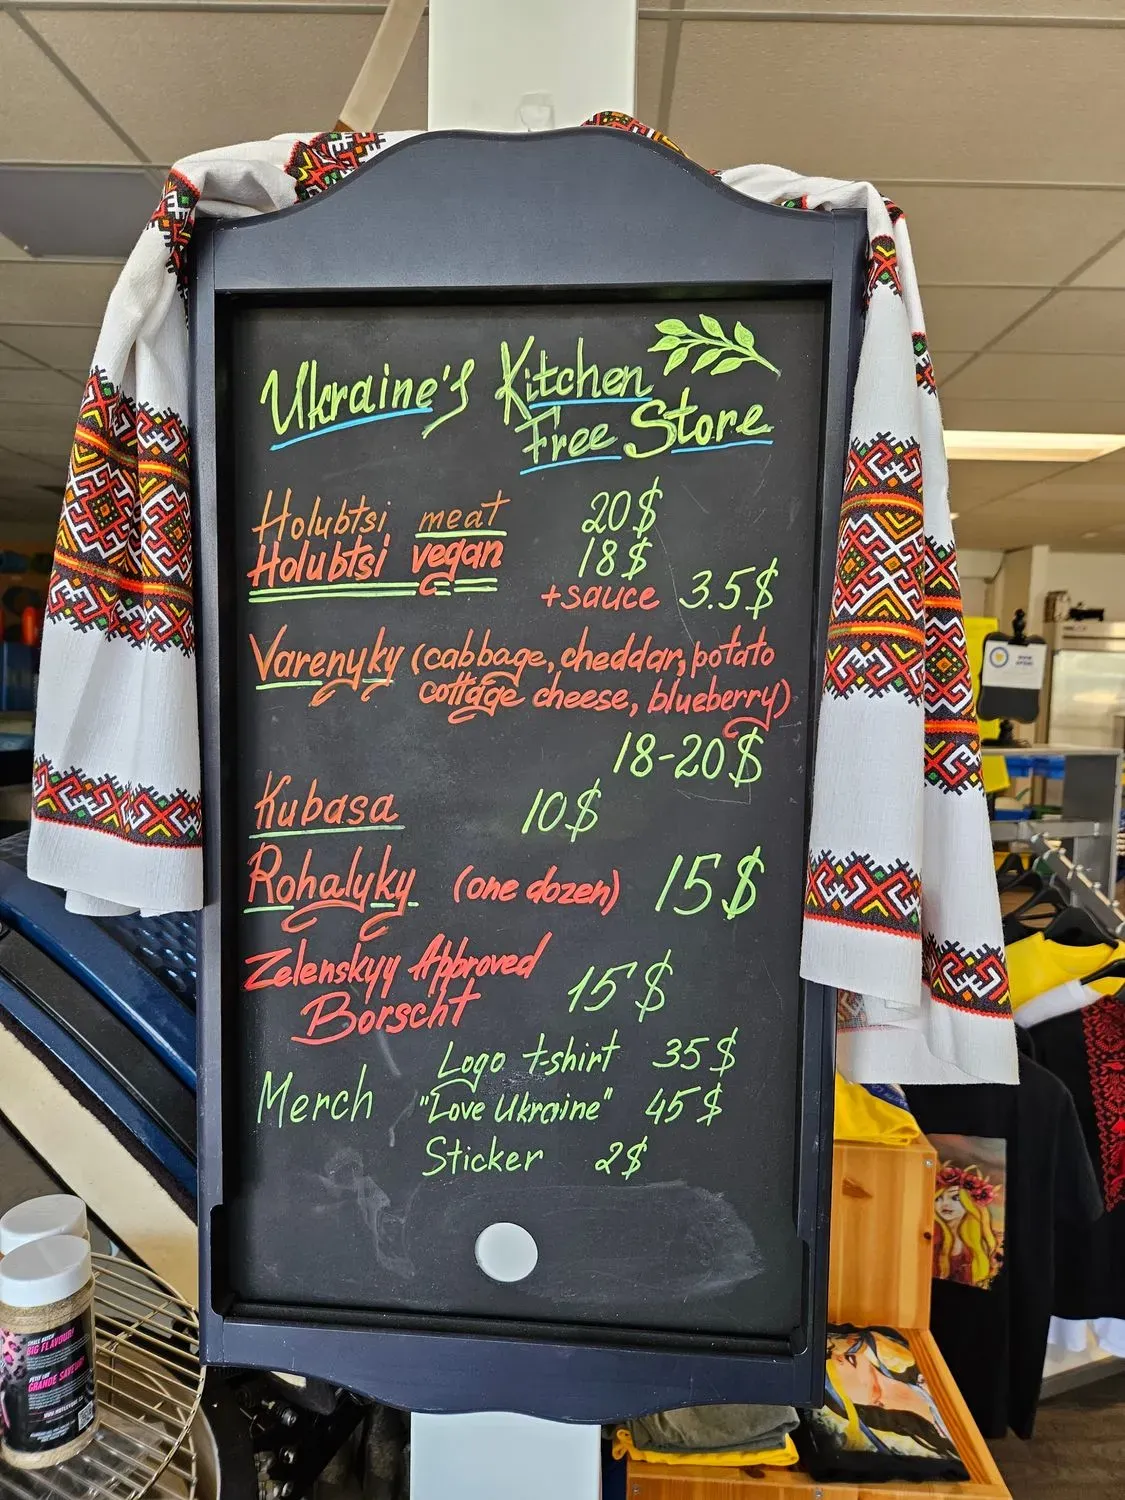 Ukraine's Kitchen
Free Store
Holubtsi meat 20$
Holubtsi vegan 18$
+sauce 3.5$
Varenyky (cabbage, cheddar, potato
cottage cheese, blueberry)
18-20$
Kubasa 10$
Rohalyky (one dozen) 15$
Zelenskyy Approved
Borscht 15$
Logo t-shirt 35$
Merch "Love Ukraine" 45$
Sticker 2$
BIG FLAVOUR!
GRANDE SAVEUR!